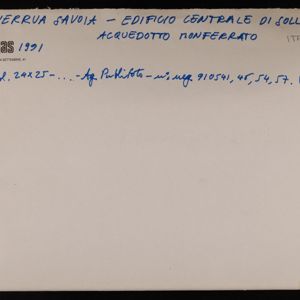 VERRUA SAVOIA - EDIFICIO CENTRALE DI SOLL
ACQUEDOTTO MONFERRATO
1991
24x25 - ... - Ag. Publifoto - n¹ neg. 910541, 45, 54, 57.